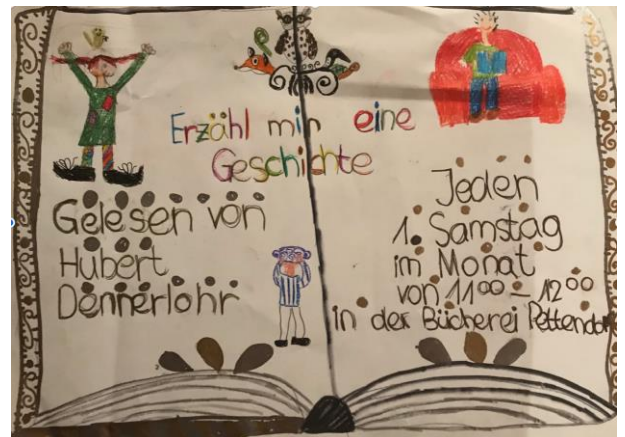 Erzähl mir eine
Geschichte
Gelesen von
Hubert
Dennerlohr
Jeden
1. Samstag
im Monat
von 11⁰⁰ – 12⁰⁰
in der Bücherei